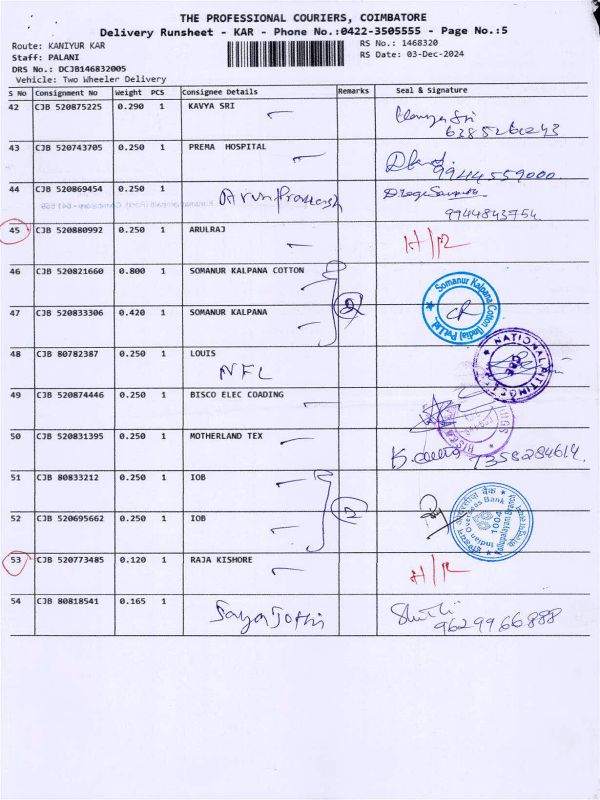 THE PROFESSIONAL COURIERS, COIMBATORE
Delivery Runsheet - KAR - Phone No.:0422-3505555 - Page No.:5
Route: KANIYUR KAR
RS No.: 1468320
Staff: PALANI
RS Date: 03-Dec-2024
DRS No.: DCJB146832005
Vehicle: Two Wheeler Delivery
S No Consignment No Weight PCS Consignee Details Remarks Seal & Signature
42 CJB 520875225 0.290 1 KAVYA SRI
Kavya Sri
43 CJB 520743705 0.250 1 PREMA HOSPITAL
9944559000
44 CJB 520869454 0.250 1
9944843754
45 CJB 520880992 0.250 1 ARULRAJ H/R
46 CJB 520821660 0.800 1 SOMANUR KALPANA COTTON
2
Somanur Kalpana Cotton (India) Pvt.Ltd.
47 CJB 520833306 0.420 1 SOMANUR KALPANA
48 CJB 80782387 0.250 1 LOUIS
NFL
NATIONAL FITTINGS
49 CJB 520874446 0.250 1 BISCO ELEC COADING
50 CJB 520831395 0.250 1 MOTHERLAND TEX
7358284614
51 CJB 80833212 0.250 1 IOB
2
Indian Overseas Bank
1004
52 CJB 520695662 0.250 1 IOB
53 CJB 520773485 0.120 1 RAJA KISHORE H/R
54 CJB 80818541 0.165 1
9629966888